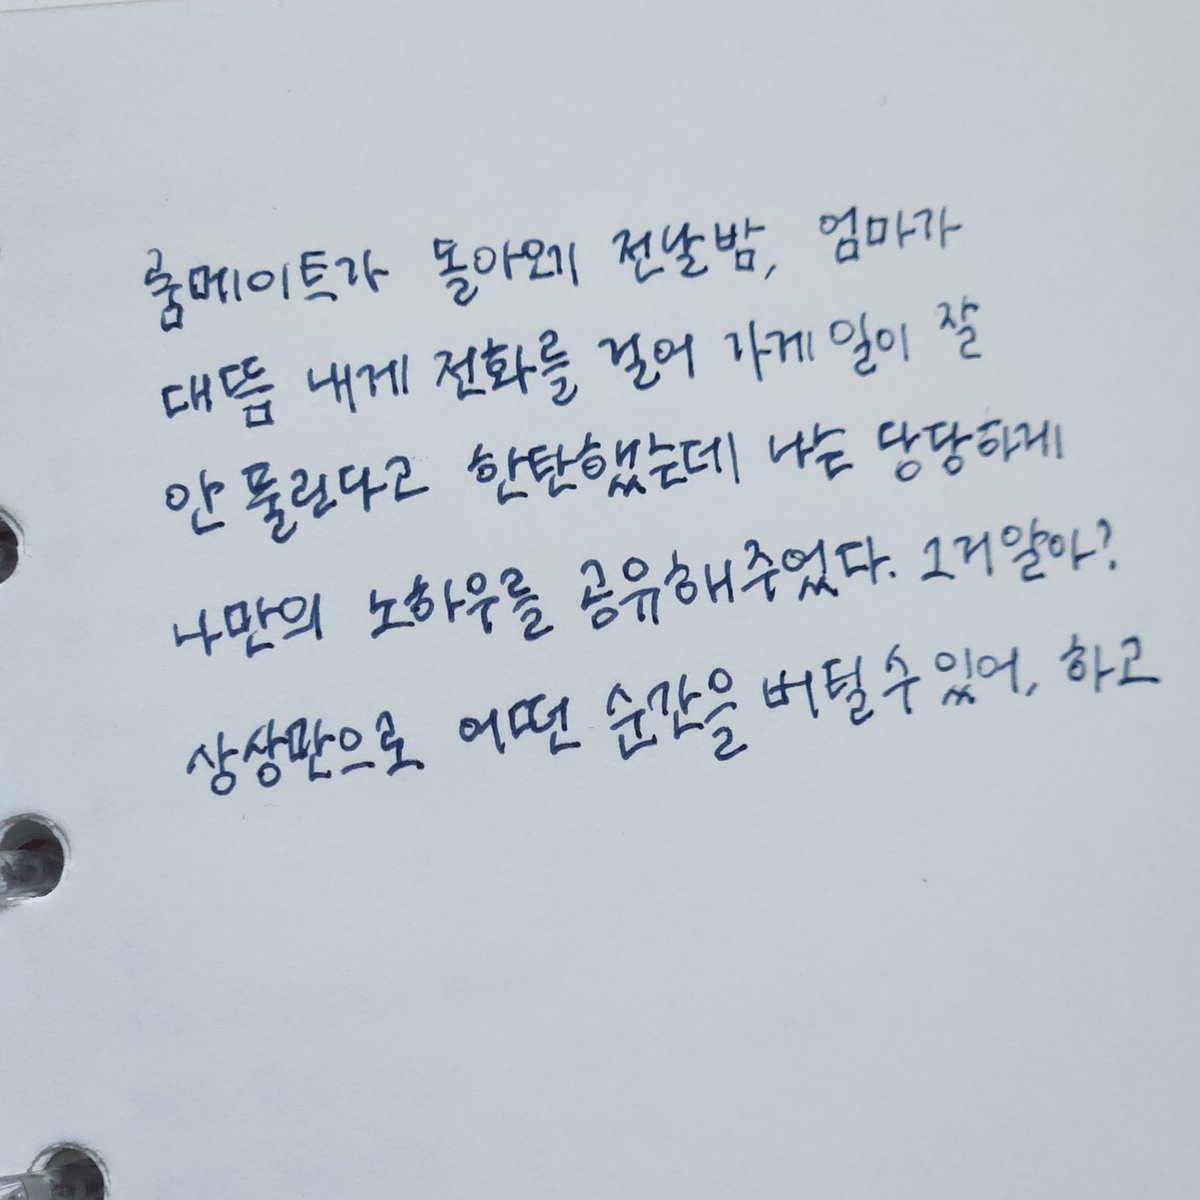 룸메이트가 돌아오기 전날 밤, 엄마가
대뜸 내게 전화를 걸어 가게 일이 잘
안 풀린다고 한탄했는데 나는 당당하게
나만의 노하우를 공유해주었다. 그거 알아?
상상만으로 어떤 순간을 버틸 수 있어, 하고